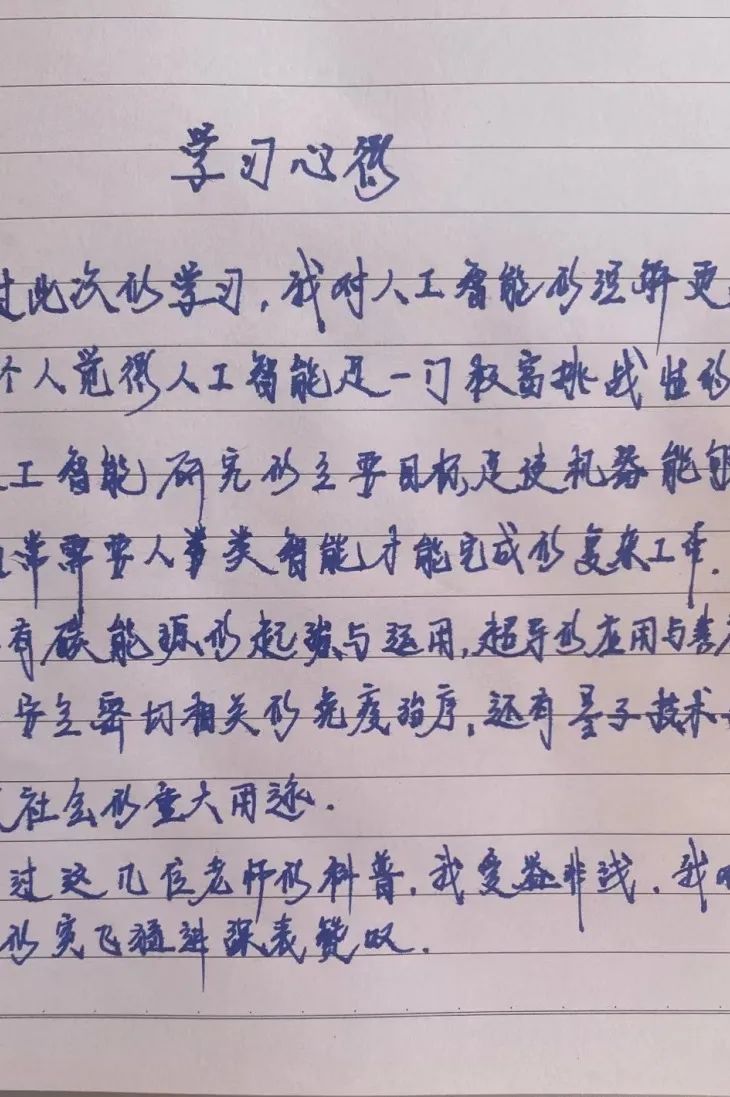 学习心得
过此次的学习,我对人工智能的理解更
个人觉得人工智能是一门极富挑战性的
工智能研究的主要目标是使机器能够
常需要人类智能才能完成的复杂工作.
有碳能源的起源与运用,超导的应用与
安全密切相关的免疫治疗,还有量子技术
社会的重大用途.
过这几位老师的科普,我受益非浅.我
的突飞猛进深表赞叹.